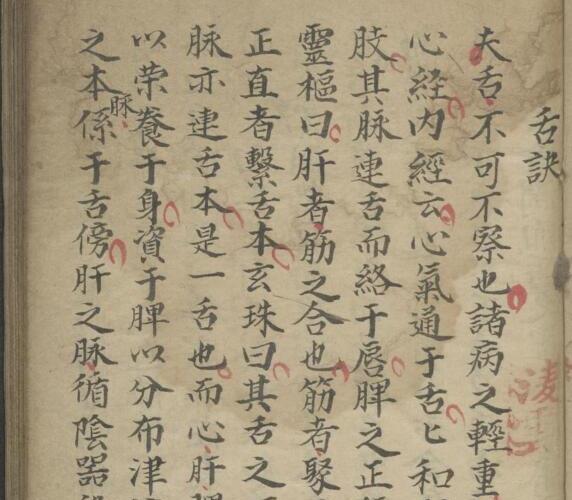 舌訣
夫舌不可不察也諸病之輕重
心経内經云心氣通于舌匕和
肢其脉連舌而絡于唇脾之正
靈樞曰肝者筋之合也筋者聚
正直者繫舌本玄珠曰其舌之
脉亦連舌本是一舌也而心肝脾
以荣養于身資于脾以分布津
之本脉係于舌傍肝之脉循陰器